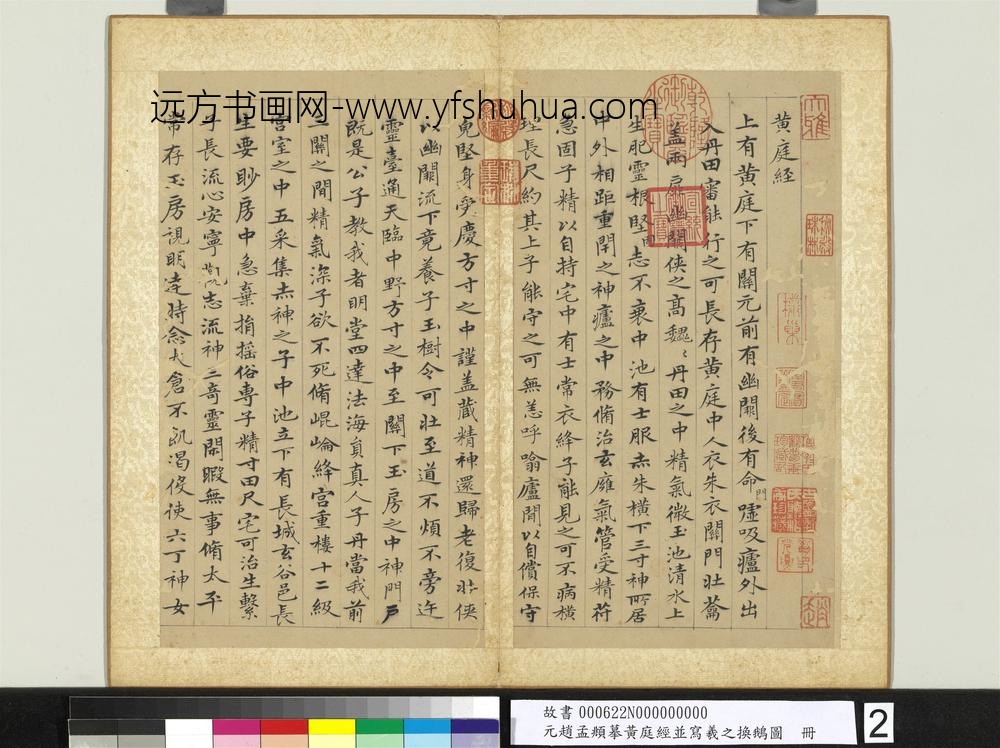 黃庭經
上有黃庭下有關元前有幽闕後有命門噓吸廬外出
入丹田審能行之可長存黃庭中人衣朱衣關門壯蘥
蓋兩扉幽關俠之高魏〻丹田之中精氣微玉池清水上
生肥靈根堅固志不衰中池有士服赤朱橫下三寸神所居
中外相距重閇之神廬之中務脩治玄廱氣管受精苻
急固子精以自持宅中有士常衣絳子能見之可不病橫
理長尺約其上子能守之可無恙呼噏廬間以自償保守
皃堅身受慶方寸之中謹蓋藏精神還歸老復壯俠
以幽闕流下竟養子玉樹令可壯至道不煩不旁迕
靈臺通天臨中野方寸之中至關下玉房之中神門戶
既是公子教我者明堂四達法海負真人子丹當我前
三關之間精氣深子欲不死脩崐崘絳宮重樓十二級
宮室之中五采集赤神之子中池立下有長城玄谷邑長
生要眇房中急棄捐搖俗專子精寸田尺宅可治生繫
子長流心安寧觀志流神三奇靈閑暇無事脩太平
常存玉房視明達時念大倉不飢渴役使六丁神女
远方书画网-www.yfshuhua.com
故書 000622N000000000
元趙孟頫摹黃庭經並寫羲之換鵝圖 冊
2